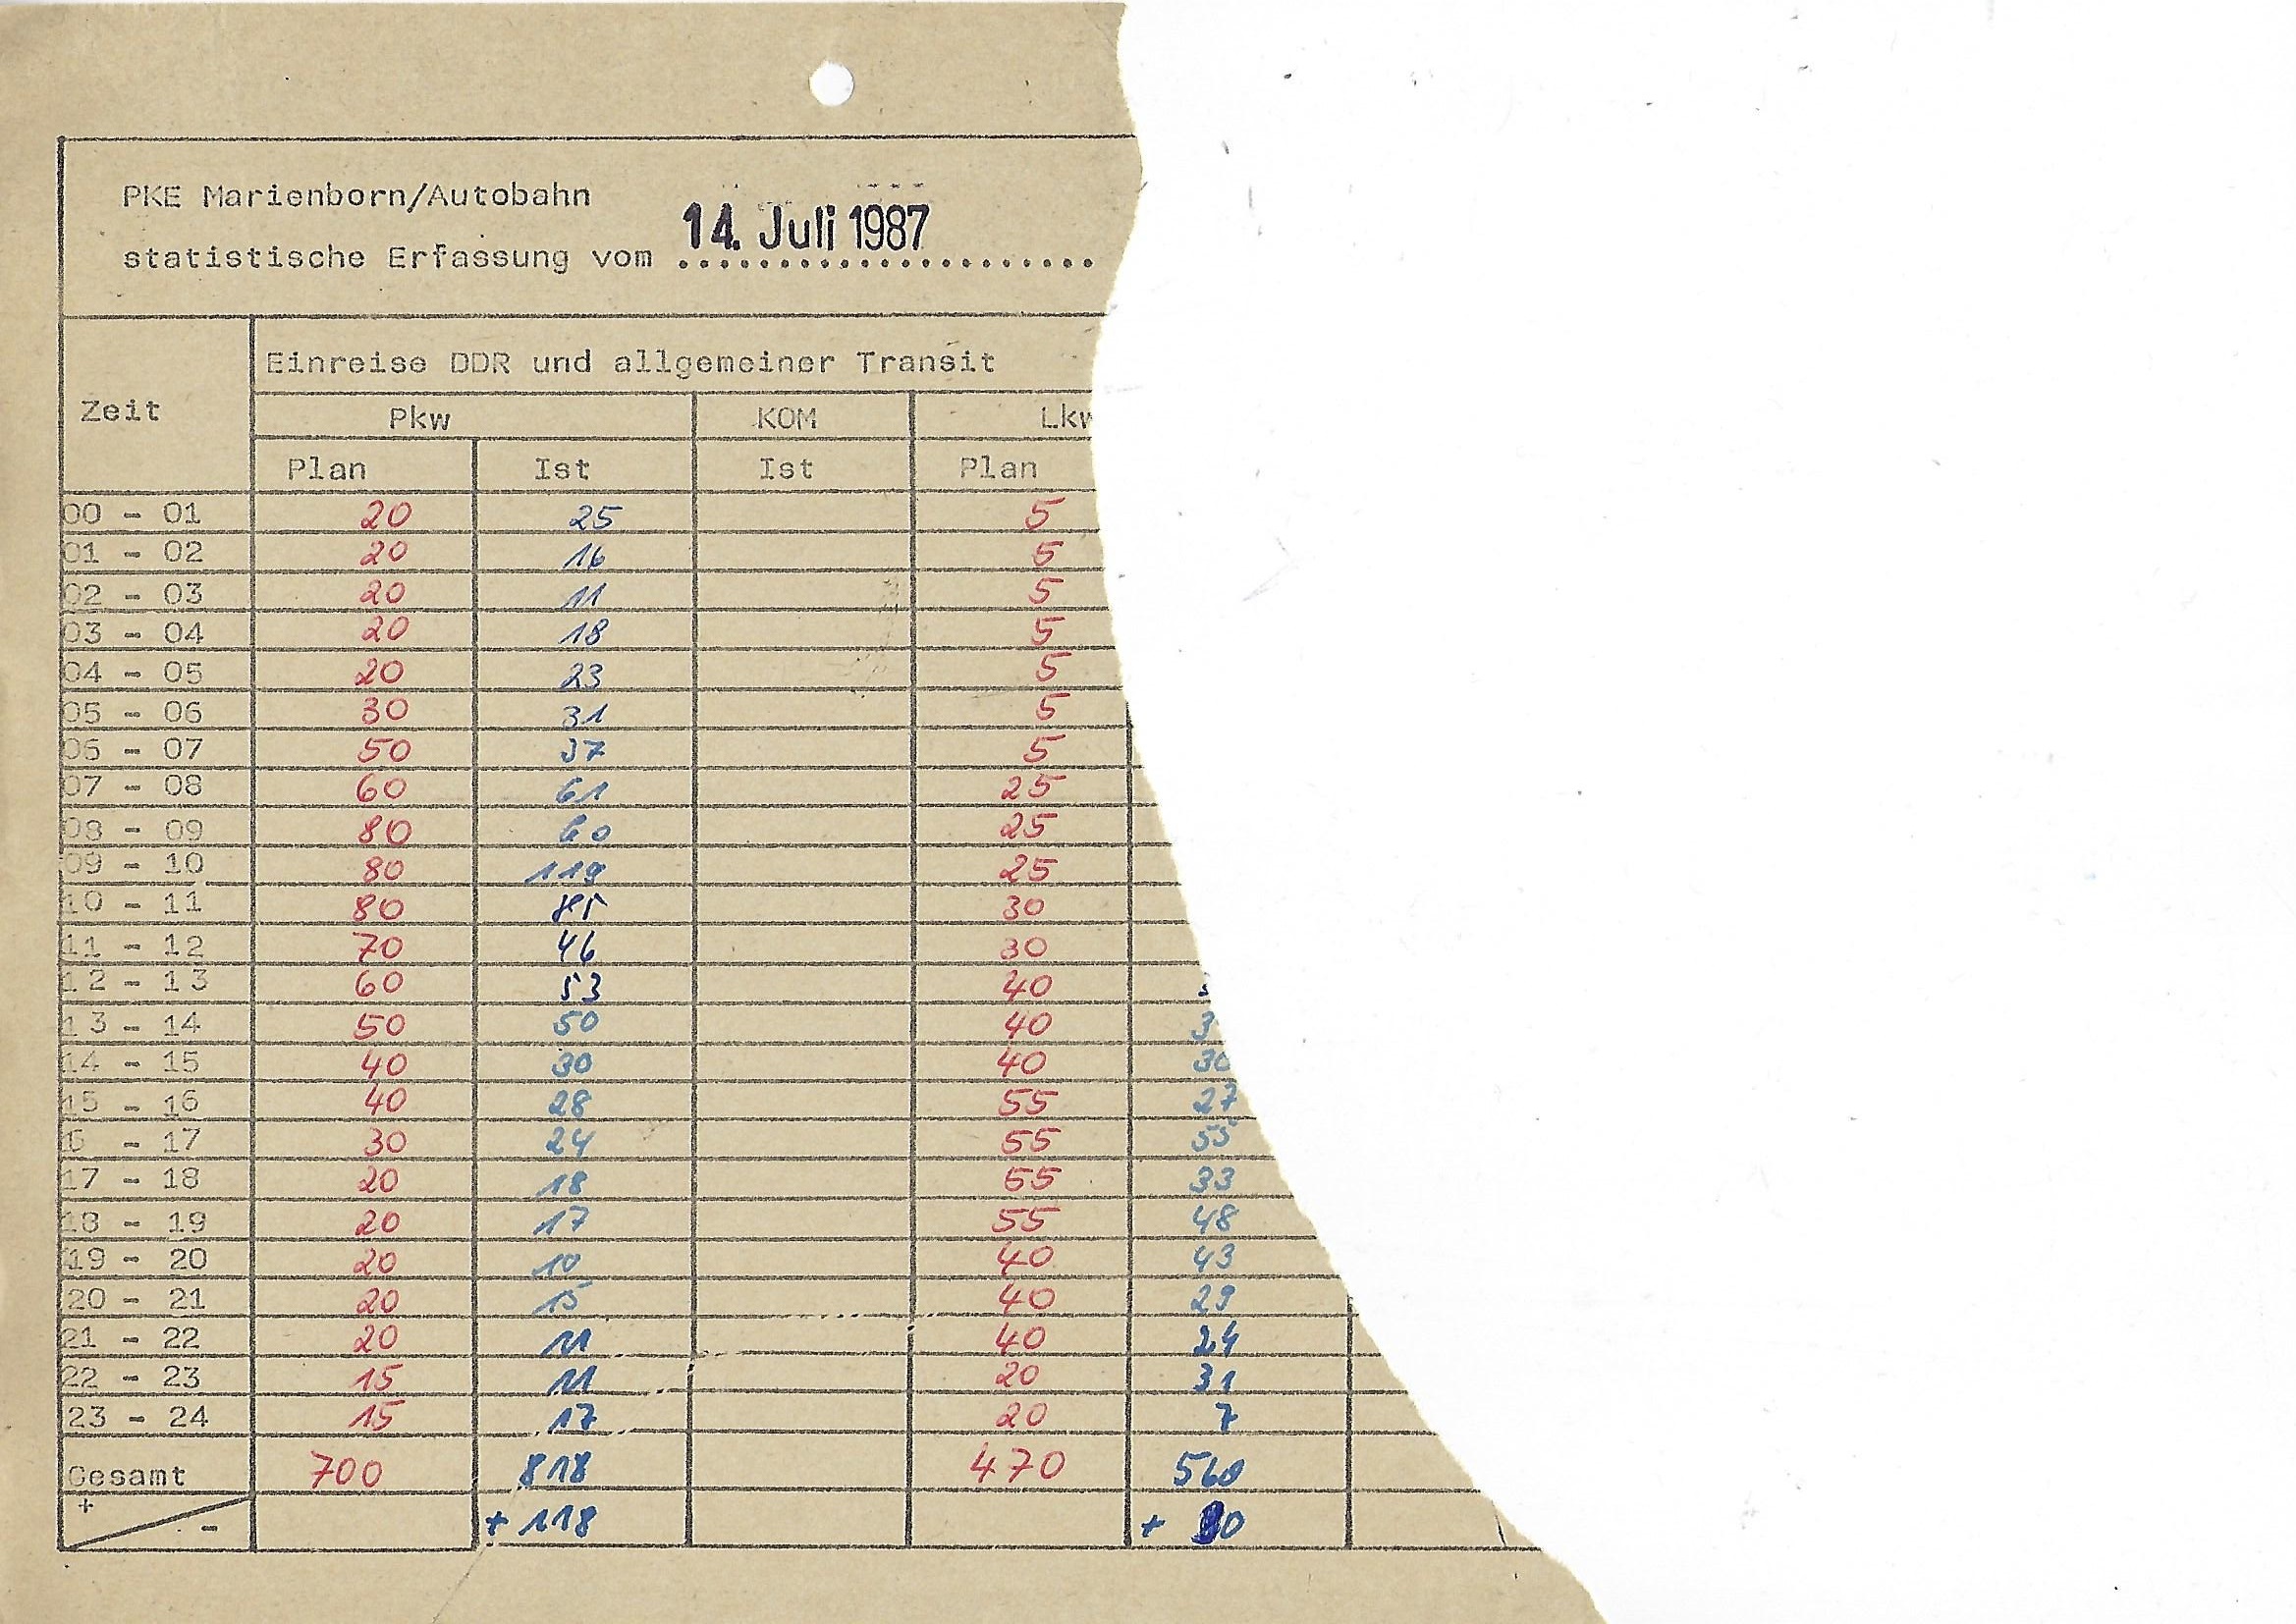 PKE Marienborn/Autobahn
14. Juli 1987
statistische Erfassung vom ......................
Einreise DDR und allgemeiner Transit
Zeit
Pkw KOM Lkw
Plan Ist Ist Plan
00 - 01 20 25 5
01 - 02 20 16 5
02 - 03 20 11 5
03 - 04 20 18 5
04 - 05 20 23 5
05 - 06 30 31 5
06 - 07 50 37 5
07 - 08 60 61 25
08 - 09 80 60 25
09 - 10 80 119 25
10 - 11 80 85 30
11 - 12 70 46 30
12 - 13 60 53 40
13 - 14 50 50 40 3
14 - 15 40 30 40 30
15 - 16 40 28 55 27
6 - 17 30 24 55 55
17 - 18 20 18 55 33
18 - 19 20 17 55 48
19 - 20 20 10 40 43
20 - 21 20 15 40 29
21 - 22 20 11 40 24
22 - 23 15 11 20 31
23 - 24 15 17 20 7
Gesamt 700 818 470 560
+ - + 118 + 90